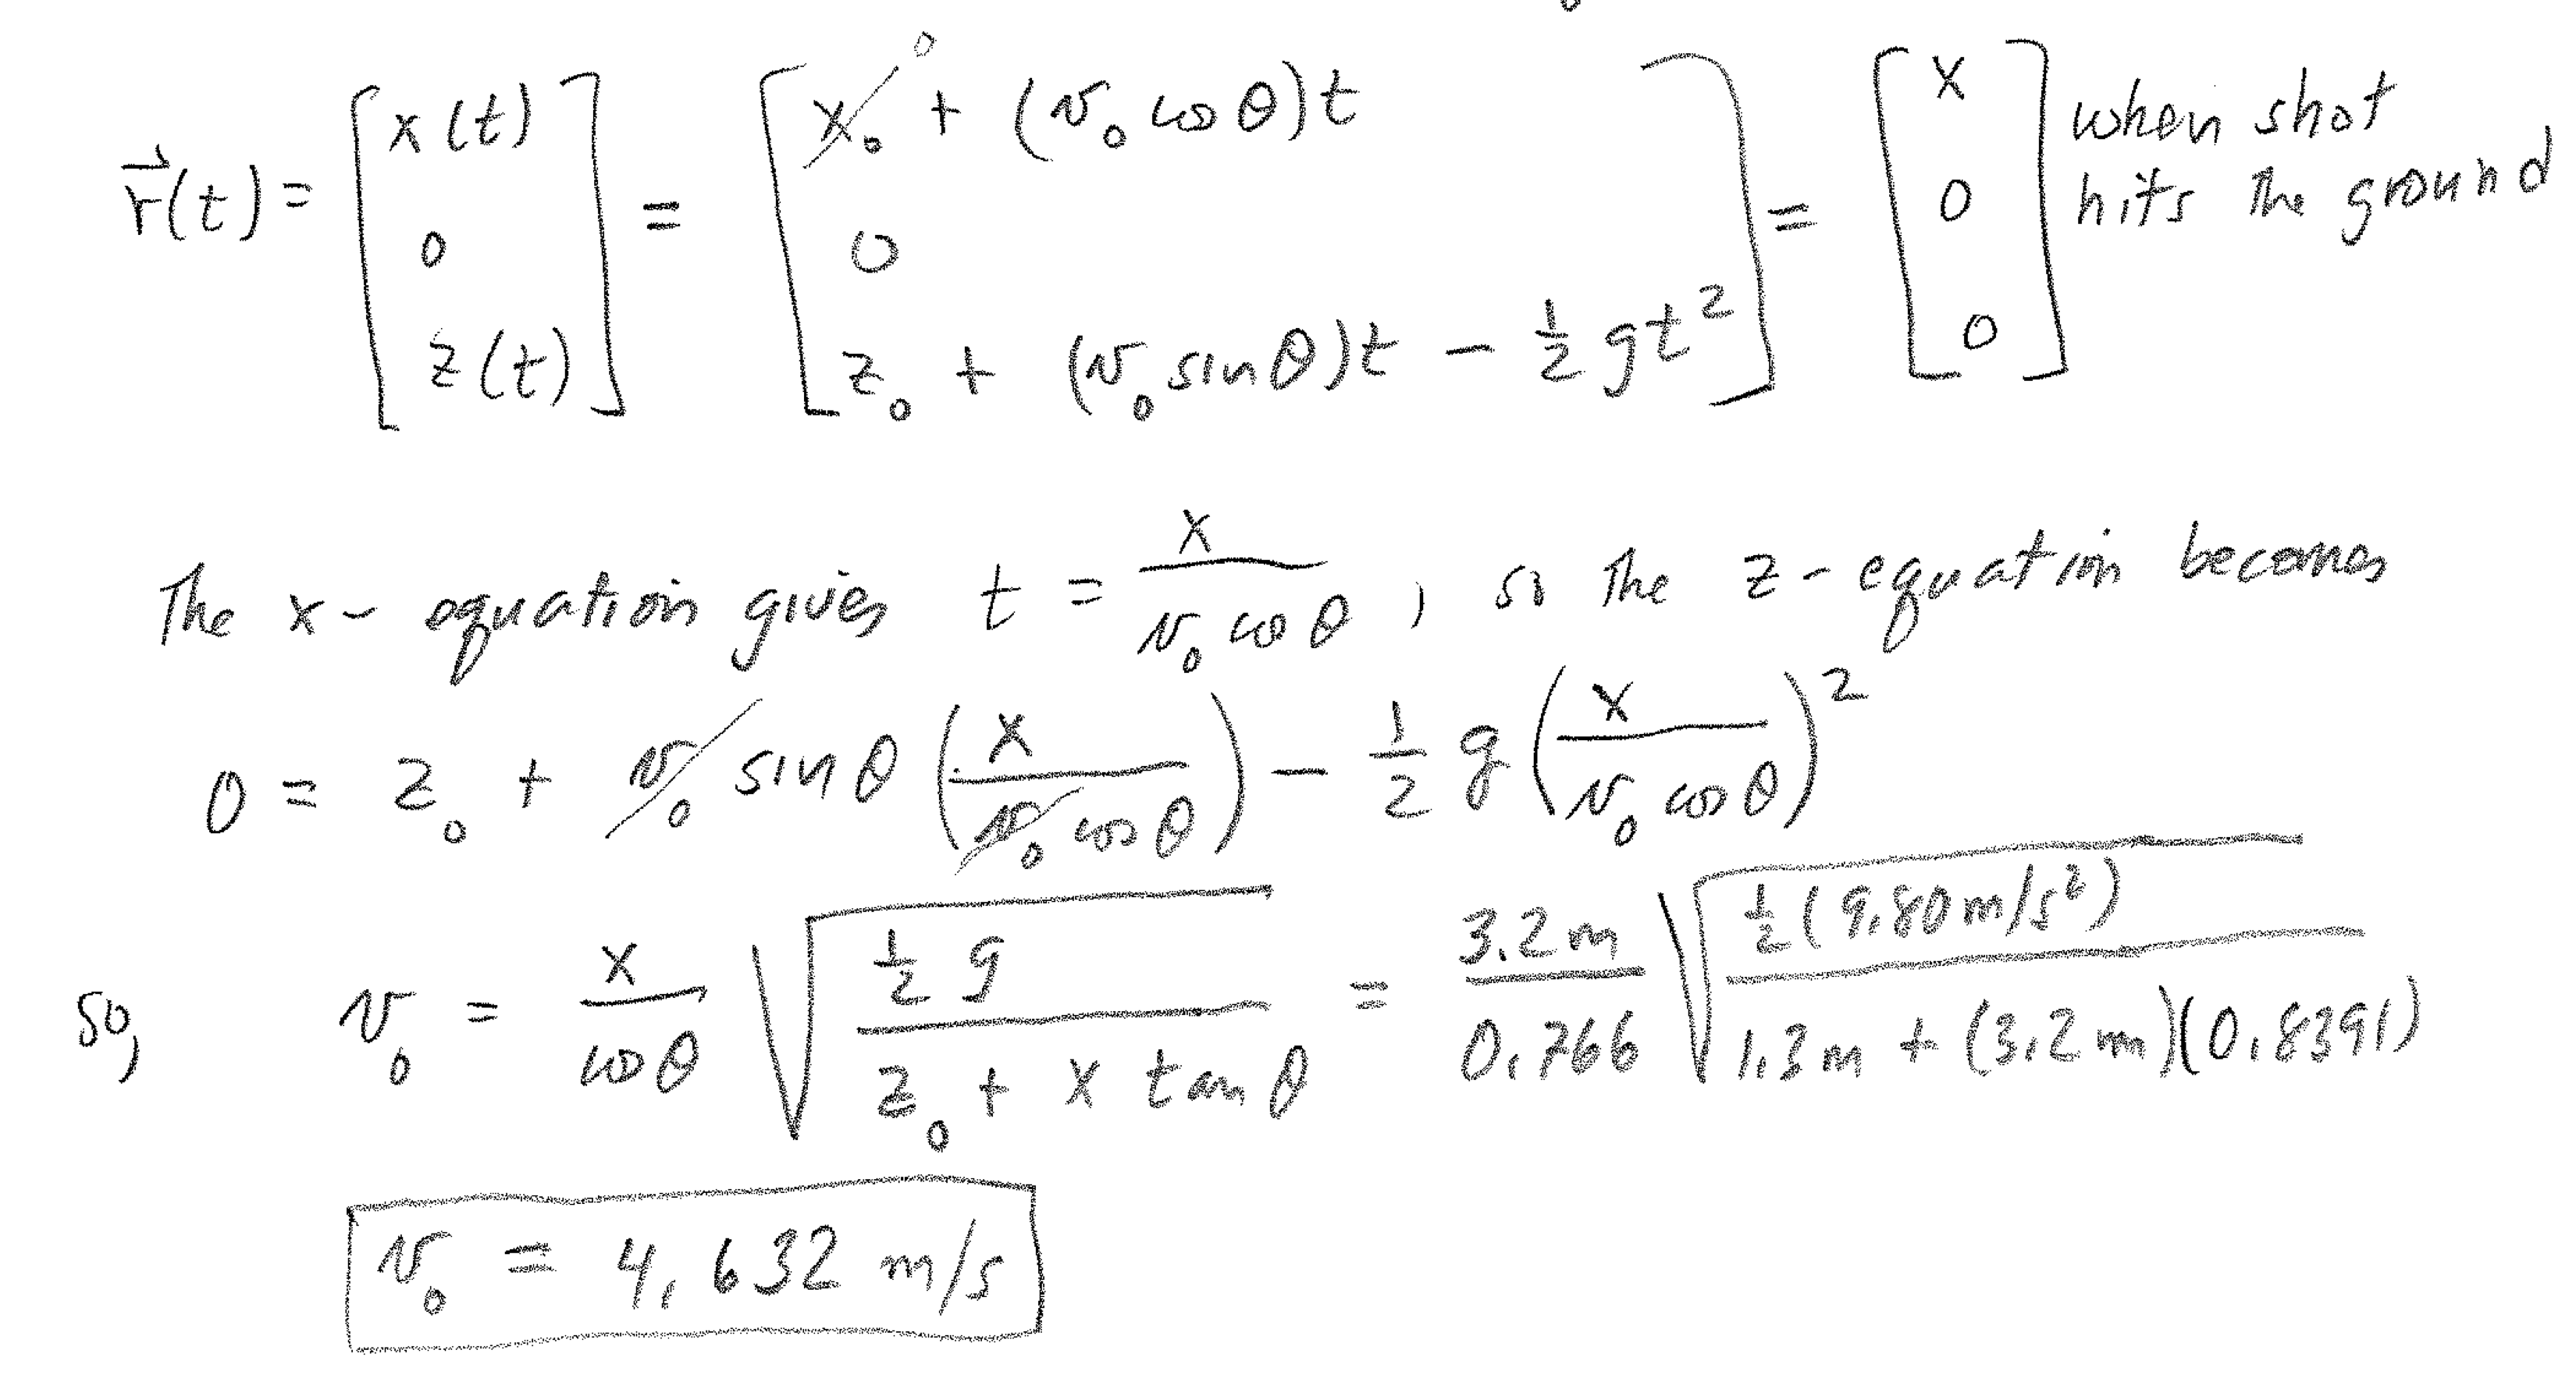 r⃗(t) = [x(t) 0 z(t)] = [x₀ 0 + (v₀ cos θ)t 0 z₀ + (v₀ sin θ)t − ½ gt²] = [x 0 0] when shot hits the ground
The x-equation gives t = x / (v₀ cos θ), so the z-equation becomes
0 = z₀ + v₀ sin θ (x / (v₀ cos θ)) − ½ g (x / (v₀ cos θ))²
so, v₀ = x / cos θ √(½ g / (z₀ + x tan θ)) = 3.2 m / 0.766 √(½ (9.80 m/s²) / (1.3 m + (3.2 m)(0.8391)))
v₀ = 4.632 m/s